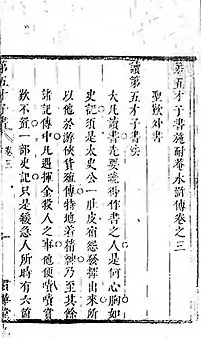 第五才子書施耐菴水滸傳卷之三
聖歎外書
讀第五才子書法
大凡讀書先要曉得作書之人是何心胸如
史記須是太史公一肚皮宿怨發揮出來所
以他於游俠貨殖傳特地着精神乃至其餘
諸記傳中凡遇揮金殺人之事他便嘖嘖賞
歎不置一部史記只是緩急人所時有六箇
第五才子書
卷三
貫華堂